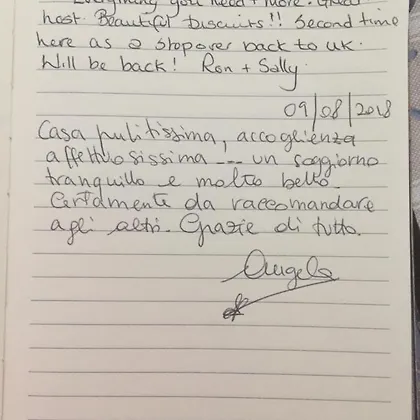 Everything you need + more. Great
host. Beautiful biscuits!! Second time
here as a stopover back to UK.
Will be back! Ron + Sally.
09/08/2018
Casa pulitissima, accoglienza
affettuosissima --- un soggiorno
tranquillo e molto bello.
Certamente da raccomandare
agli altri. Grazie di tutto.
Angela